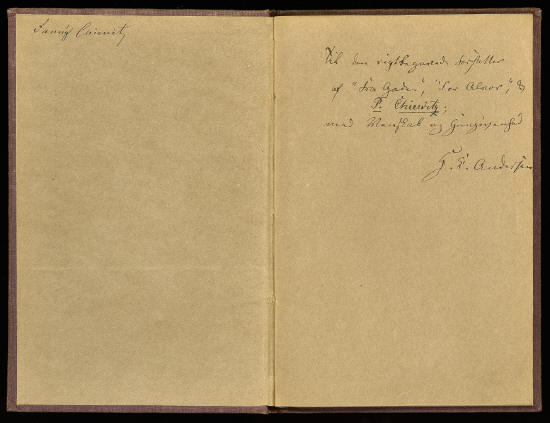 Fanny Chiewitz
Til den rigtbegavede Forfatter
af "Fra Gaden", "For Alvor",
P. Chiewitz,
med Venskab og Hengivenhed
H. C. Andersen